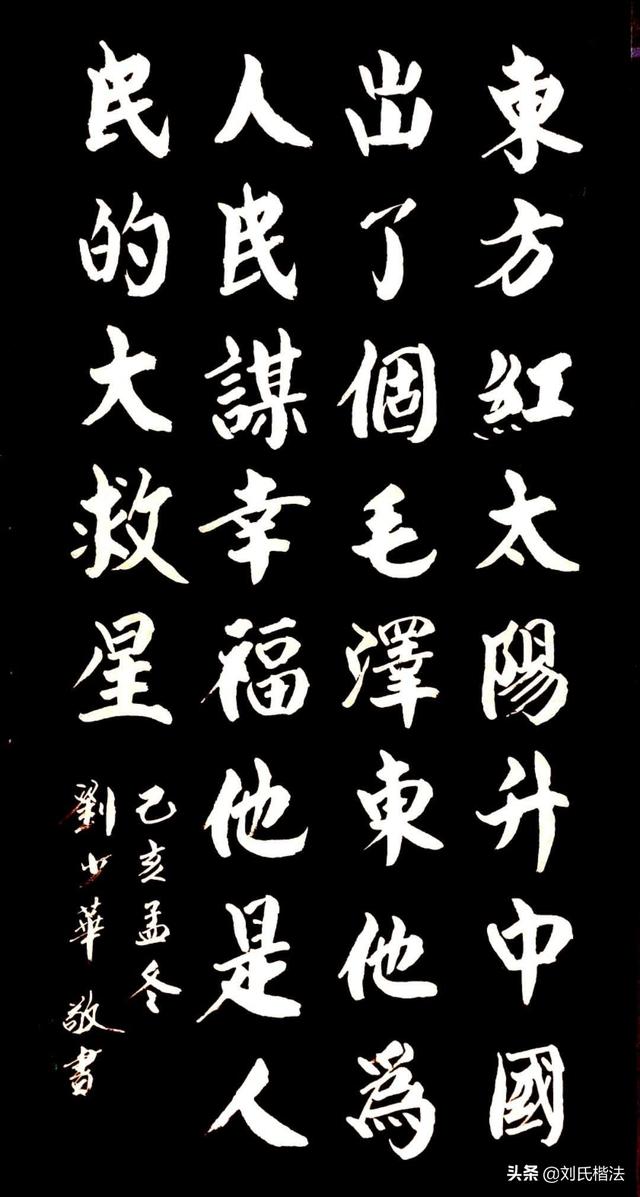 東方紅太陽升中國
出了個毛澤東他為
人民謀幸福他是人
民的大救星
乙亥孟冬
劉少華敬書
头条 @刘氏楷法